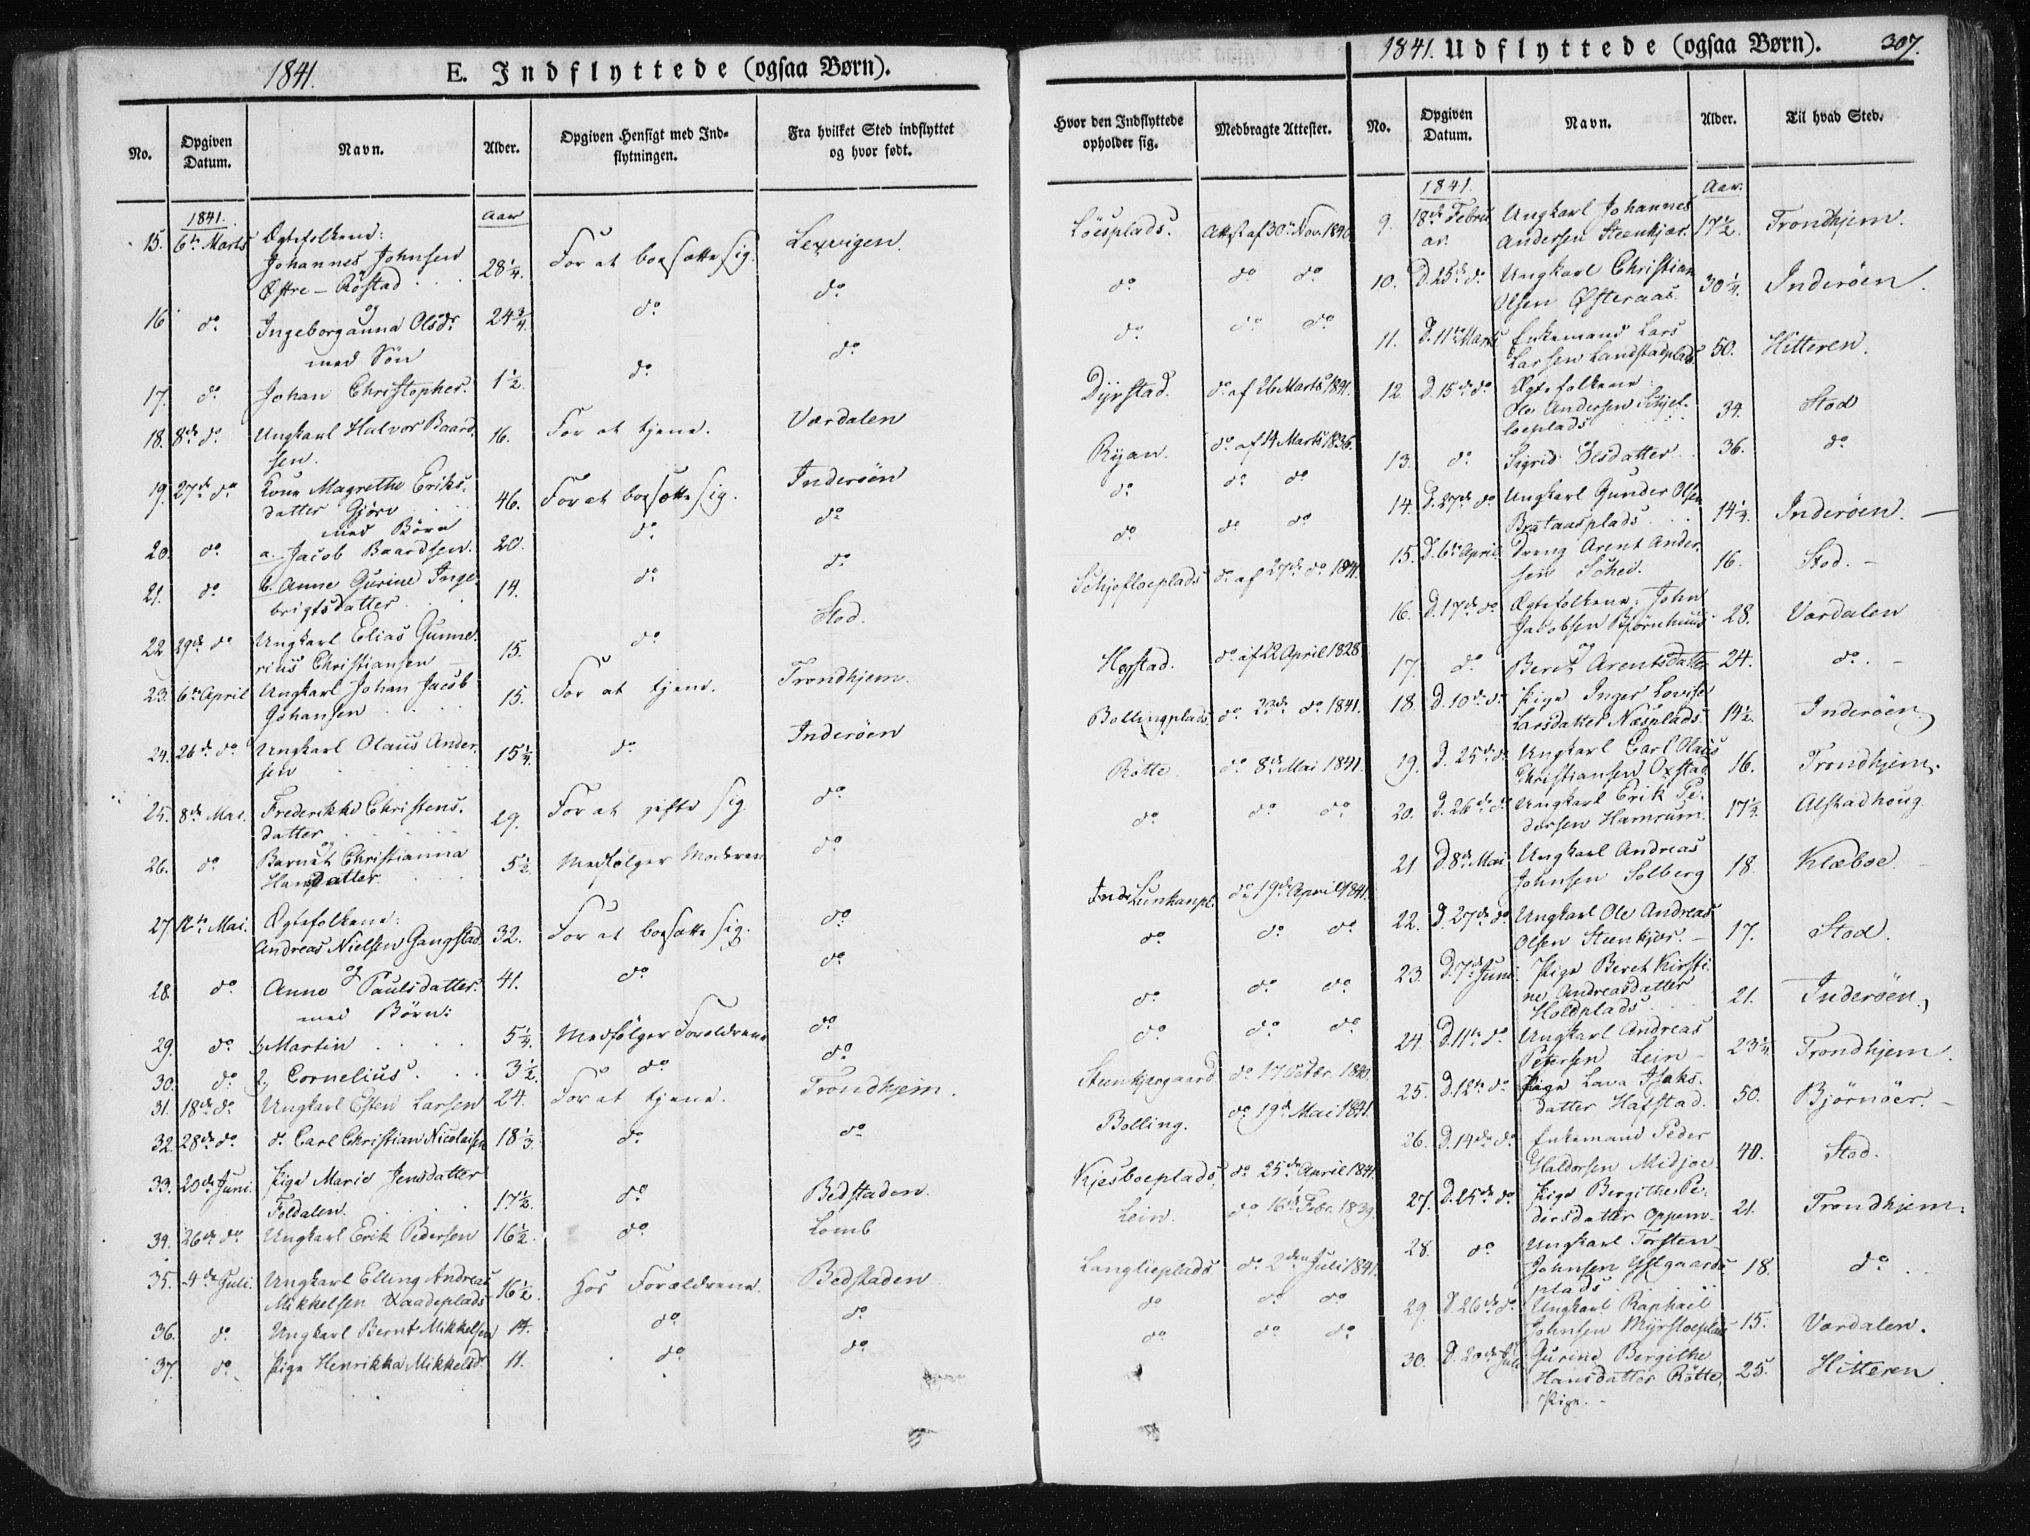 1841.
E. Indflyttede (ogsaa Børn).
No.
Opgiven Datum.
Navn.
Alder.
Opgiven Hensigt med Ind-
flytningen.
Fra hvilket Sted indflyttet
og hvor født.
Hvor den Indflyttede
opholder sig.
Medbragte Attester.
1841. Aar
15. 6te Marts Ægtefolkene:
Johannes Johnsen
Østre-Röstad 28 1/4. For at boesætte sig. Lexvigen. Löesplads. Attest af 30te Nov. 1840
og
16 do Ingeborganna Olsdr 24 3/4. do do do do do
med Sön
17. do Johan Christopher. 1 1/2. do do do do do
18. 8de do Ungkarl Halvor Baard-
sen. 16. For at tjene. Værdalen Dyrstad. do af 26 Marts 1841.
19. 27de do Kone Magrethe Eriks-
datter Gjörv 46. For at boesætte sig. Inderöen Ryan. do af 14 Marts 1836.
med Börn
20. do a. Jacob Baardsen. 20. do do do do do
21. do b. Anne Gurine Inge-
brigtsdatter 14. do do do do do
22 29de do Ungkarl Elias Gunne-
rius Christiansen 15. do Stod. do af 27de do 1841.
23. 6te April Ungkarl Johan Jacob
Johansen 15. For at tjene. Trondhjem. Hegstad. do af 22 April 1828
24. 26de do Ungkarl Olaus Ander-
sen 15 1/4. do Inderöen Bollingplads. do 23de do 1841.
25. 8de Mai. Frederikke Christens-
datter 29. For at gifte sig do Rötte do 8de Mai 1841.
og
26. do Barnet Christianna
Hansdatter 5 1/2. Medfölger Moderen do do do do
27 12te Mai. Ægtefolkene:
Andreas Nielsen Gangstad. 32. For at boesætte sig. do Lunkanpl. do 19de April 1841.
og
28. do Anne Paulsdatter. 41. do do do do do
med Börn:
29. do Martin 5 1/4. Medfölger Forældrene do do do do
30. do 2, Cornelius. 3 1/2. do do do do do
31. 18de do Ungkarl Esten Larsen 24. For at tjene. Trondhjem. Steenkjergaard do 17 Octbr. 1840.
32. 28de do do Carl Christian Nicolaisen 18 1/3. do do Bolling. do 19de Mai 1841.
33. 20de Juni. Pige Marie Jensdatter
Foldalen. 17 1/2. do Bedstaden. Kjesboeplads do 25de April 1841.
34. 26de do Ungkarl Erik Pedersen 16 1/2. do Lomb Lein. do 16de Febr. 1839.
35. 4de Juli. Ungkarl Elling Andreas
Mikkelsen Vaadeplads 16 1/2. Hos Forældrene. Bedstaden Langlieplads. do 2den Juli 1841.
36. do Ungkarl Bernt Mikkelsen 14. do do do do do
37. do Pige Henrikka Mikkelsdr. 11. do do do do do
1841. Udflyttede (ogsaa Børn). 307.
No.
Opgiven
Datum.
Navn.
Alder.
Til hvad Sted.
1841. Aar.
9. 18de Febru-
ar. Ungkarl Johannes
Andersen Steenkjær. 17 1/2. Trondhjem.
10. D. 25de do Ungkarl Christian
Olsen Østeraas. 30 1/4. Inderöen.
11. D. 11te Marts Enkemand Lars
Larsen Landstadplads 50. Hitteren.
12. D. 15de do Ægtefolkene
Ole Andersen Schjef-
loeplads 34. Stod
og
13. do Sigrid Olsdatter 36. do
14. D. 27de do Ungkarl Gunder Olsen
Brataasplads 14 1/4. Inderöen.
15. D. 6te April. Dreng Arent Ander-
sen Schei. 16. Stod.
16. D. 17de do Ægtefolkene, John
Jacobsen Bjørnhuus 28. Værdalen
og
17. do Beret Arentsdatter 24. do.
18. D. 10de do. Pige Inger Lovise
Larsdatter Næsplads. 14 1/2. Inderöen.
19. D. 25de do Ungkarl Carl Olaus
Christiansen Oxstad. 16. Trondhjem.
20. D. 26de do Ungkarl Erik Pe-
dersen Hamrum. 17 1/2. Alstadhoug
21 D. 8de Mai Ungkarl Andreas
Johnsen Solberg 18. Klæboe
22. D. 27de do Ungkarl Ole Andreas
Olsen Steenkjær. 17. Stod.
23. D. 7de Juni. Pige Beret Kirsti-
ne Andreasdatter
Holdplads 21. Inderöen.
24. D. 11te do. Ungkarl Andreas
Petersen Lein 23 1/4. Trondhjem.
25. D. 12te do Pige Lava Isaks-
datter Hafstad. 50. Bjørnöer.
26. D. 14de do. Enkemand Peder
Haldorsen Midjoe 40. Stod.
27. D. 25de do. Pige Bergithe Pe-
dersdatter Oppem 21. Trondhjem.
28. do Ungkarl Torsten
Johnsen Ystgaards-
plads 18. do
29. D. 26de do. Ungkarl Raphael
Johnsen Myrstoeplads 15. Værdalen.
30. D. 20de Juli Gurine Bergithe
Hansdatter Rötte,
Pige. 25. Hitteren.